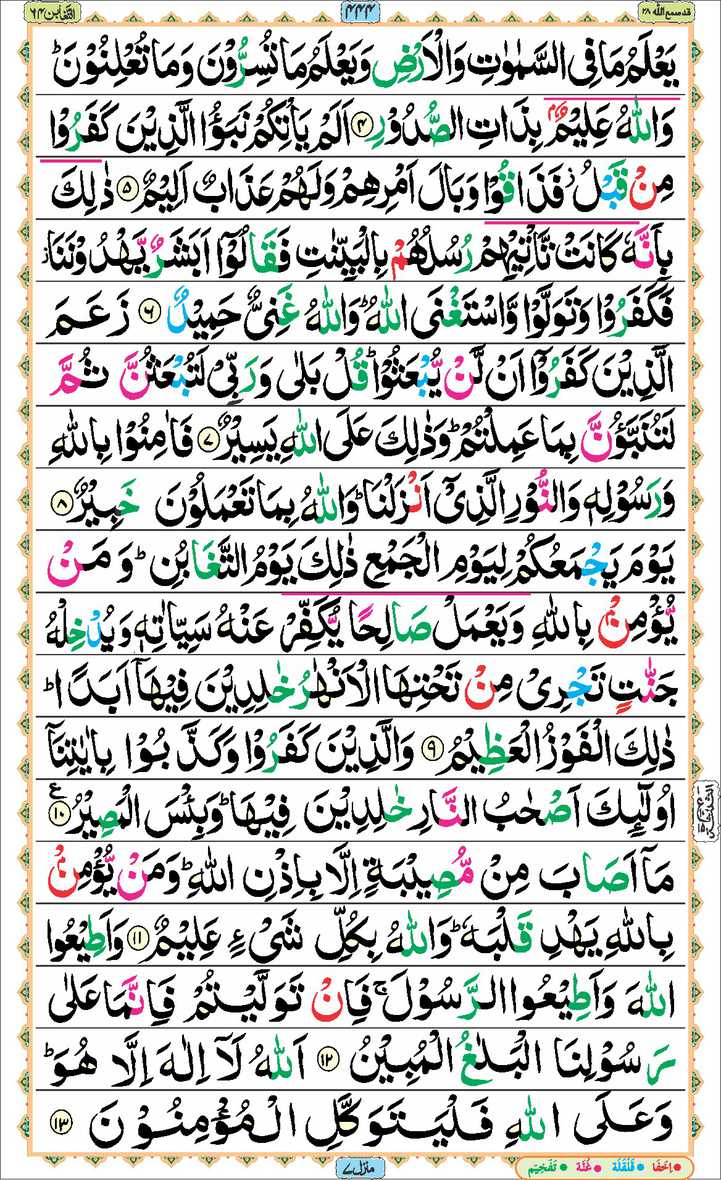 قدسمع الله ٢٨
٤٤٤
التغابن ٦٤
يَعْلَمُ مَا فِى السَّمٰوٰتِ وَالْاَرْضِ وَيَعْلَمُ مَا تُسِرُّوْنَ وَمَا تُعْلِنُوْنَ ؕ
وَاللّٰهُ عَلِيْمٌۢ بِذَاتِ الصُّدُوْرِ ۴ اَلَمْ يَاْتِكُمْ نَبَؤُا الَّذِيْنَ كَفَرُوْا
مِنْ قَبْلُ ؗ فَذَاقُوْا وَبَالَ اَمْرِهِمْ وَلَهُمْ عَذَابٌ اَلِيْمٌ ۵ ذٰلِكَ
بِاَنَّهٗ كَانَتْ تَّاْتِيْهِمْ رُسُلُهُمْ بِالْبَيِّنٰتِ فَقَالُوْۤا اَبَشَرٌ يَّهْدُوْنَنَا ؗ
فَكَفَرُوْا وَتَوَلَّوْا وَّاسْتَغْنَى اللّٰهُ ؕ وَاللّٰهُ غَنِىٌّ حَمِيْدٌ ۶ زَعَمَ
الَّذِيْنَ كَفَرُوْۤا اَنْ لَّنْ يُّبْعَثُوْا ؕ قُلْ بَلٰى وَرَبِّىْ لَتُبْعَثُنَّ ثُمَّ
لَتُنَبَّؤُنَّ بِمَا عَمِلْتُمْ ؕ وَذٰلِكَ عَلَى اللّٰهِ يَسِيْرٌ ۷ فَاٰمِنُوْا بِاللّٰهِ
وَرَسُوْلِهٖ وَالنُّوْرِ الَّذِىْۤ اَنْزَلْنَا ؕ وَاللّٰهُ بِمَا تَعْمَلُوْنَ خَبِيْرٌ ۸
يَوْمَ يَجْمَعُكُمْ لِيَوْمِ الْجَمْعِ ذٰلِكَ يَوْمُ التَّغَابُنِ ؕ وَمَنْ
يُّؤْمِنْۢ بِاللّٰهِ وَيَعْمَلْ صَالِحًا يُّكَفِّرْ عَنْهُ سَيِّاٰتِهٖ وَيُدْخِلْهُ
جَنّٰتٍ تَجْرِىْ مِنْ تَحْتِهَا الْاَنْهٰرُ خٰلِدِيْنَ فِيْهَاۤ اَبَدًا ؕ
ذٰلِكَ الْفَوْزُ الْعَظِيْمُ ۹ وَالَّذِيْنَ كَفَرُوْا وَكَذَّبُوْا بِاٰيٰتِنَاۤ
اُولٰٓئِكَ اَصْحٰبُ النَّارِ خٰلِدِيْنَ فِيْهَا ؕ وَبِئْسَ الْمَصِيْرُ ۱۰ ع
مَاۤ اَصَابَ مِنْ مُّصِيْبَةٍ اِلَّا بِاِذْنِ اللّٰهِ ؕ وَمَنْ يُّؤْمِنْۢ
بِاللّٰهِ يَهْدِ قَلْبَهٗ ؕ وَاللّٰهُ بِكُلِّ شَىْءٍ عَلِيْمٌ ۱۱ وَاَطِيْعُوا
اللّٰهَ وَاَطِيْعُوا الرَّسُوْلَ ۚ فَاِنْ تَوَلَّيْتُمْ فَاِنَّمَا عَلٰى
رَسُوْلِنَا الْبَلٰغُ الْمُبِيْنُ ۱۲ اَللّٰهُ لَاۤ اِلٰهَ اِلَّا هُوَ ؕ
وَعَلَى اللّٰهِ فَلْيَتَوَكَّلِ الْمُؤْمِنُوْنَ ۱۳
منزل ۷
اِخفَا • قَلقَلَة • غُنَّه • تَفخِيْم •